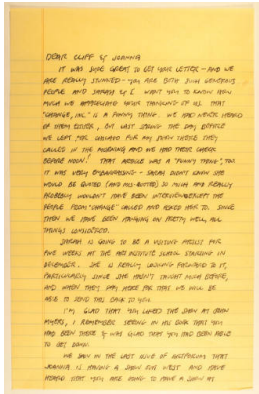 DEAR CLIFF & JOANNA
IT WAS SURE GREAT TO GET YOUR LETTER - AND WE
ARE REALLY STUNNED - YOU ARE BOTH SUCH GENEROUS
PEOPLE AND SARAH & I WANT YOU TO KNOW HOW
MUCH WE APPRECIATE YOUR THINKING OF US. THAT
"CHANGE, INC." IS A FUNNY THING. WE HAD NEVER HEARD
OF THEM EITHER, BUT LAST SPRING THE DAY BEFORE
WE LEFT FOR CHICAGO FOR ANY OPEN THERE THEY
CALLED IN THE MORNING AND WE HAD THEIR CHECK
BEFORE NOON! THAT ARTICLE WAS A "FUNNY THING", TOO
IT WAS VERY EMBARRASSING - SARAH DIDN'T KNOW SHE
WOULD BE QUOTED (AND MIS-QUOTED) SO MUCH AND REALLY
PROBABLY WOULDN'T HAVE BEEN INTERVIEWED EXCEPT THE
PEOPLE FROM "CHANGE" CALLED AND ASKED HER TO. SINCE
THEN WE HAVE BEEN HANGING ON PRETTY WELL, ALL
THINGS CONSIDERED.
SARAH IS GOING TO BE A VISITING ARTIST FOR
FIVE WEEKS AT THE ART INSTITUTE SCHOOL STARTING IN
DECEMBER. SHE IS REALLY LOOKING FORWARD TO IT,
PARTICULARLY SINCE SHE HASN'T TAUGHT MUCH BEFORE,
AND WHEN THEY PAY HER FOR THAT WE WILL BE
ABLE TO SEND THIS BACK TO YOU.
I'M GLAD THAT YOU LIKED THE SHOW AT JOHN
MYERS, I REMEMBER SEEING IN HIS BOOK THAT YOU
HAD BEEN THERE & WAS GLAD THAT YOU HAD BEEN ABLE
TO GET DOWN.
WE SAW IN THE LAST ISSUE OF ARTFORUM THAT
JOANNA IS HAVING A SHOW OUT WEST AND HAVE
HEARD THAT YOU ARE GOING TO HAVE A SHOW AT